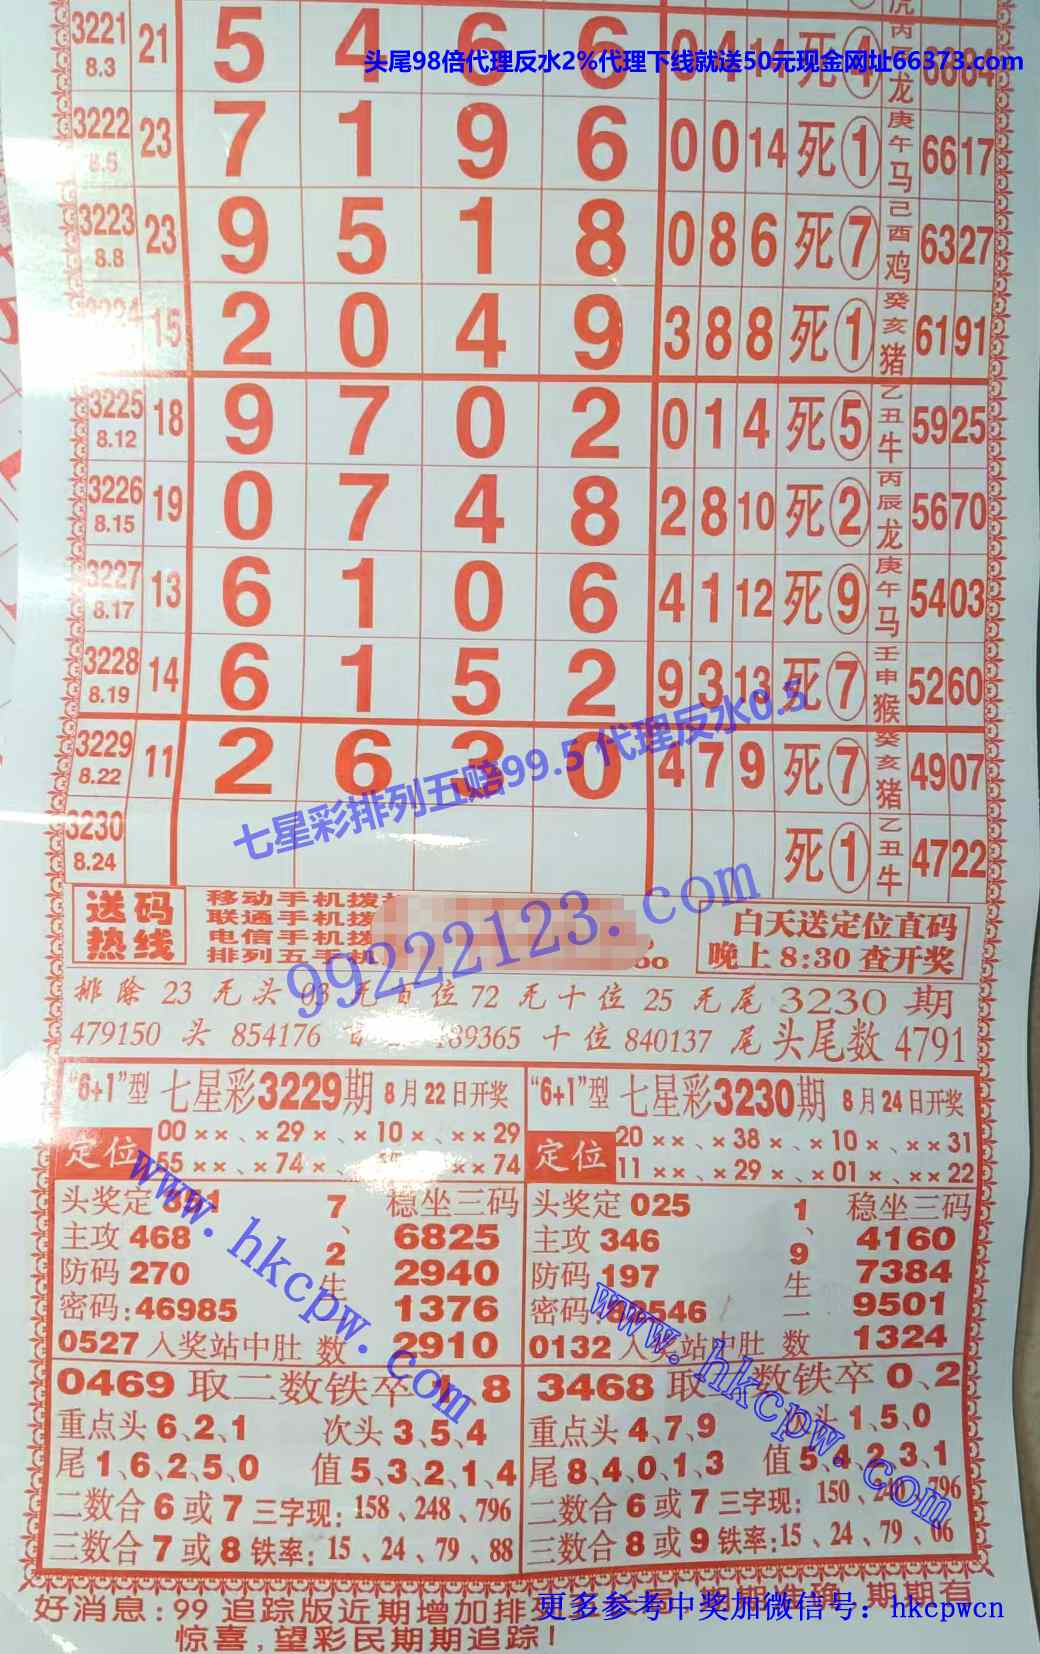 3221 21 5 4 6 6 死④ 丙辰龙
8.3
头尾98倍代理反水2%代理下线就送50元现金网址66373.com
3222 23 7 1 9 6 0 0 14 死① 庚午马 66 17
8.5
3223 23 9 5 1 8 0 8 6 死⑦ 己酉鸡 63 27
8.8
15 2 0 4 9 3 8 8 死① 癸亥猪 61 91
3225 18 9 7 0 2 0 1 4 死⑤ 乙丑牛 59 25
8.12
3226 19 0 7 4 8 2 8 10 死② 丙辰龙 56 70
8.15
3227 13 6 1 0 6 4 1 12 死⑨ 庚午马 54 03
8.17
3228 14 6 1 5 2 9 3 13 死⑦ 壬申猴 52 60
8.19
3229 11 2 6 3 0 4 7 9 死⑦ 癸亥猪 49 07
8.22
七星彩排列五赔99.5 代理反水0.5
3230 死① 乙丑牛 47 22
8.24
送码热线
移动手机拨
联通手机拨
电信手机拨
排列五手机
99222123.com
白天送定位直码
晚上8:30查开奖
排除 23 无头 93 无百位 72 无十位 25 无尾 3230 期
479150 头 854176 489365 十位 840137 尾 头尾数 4791
“6+1”型 七星彩3229期 8月22日开奖
定位
00××、×29×、×10×、××29
55××、×74×、 ××74
头奖定 851
主攻 468
防码 270
密码:46985
0527 入奖站中肚
7、2生一数
稳坐三码
6825
2940
1376
2910
0469 取二数铁卒 1、8
重点头 6、2、1 次头 3、5、4
尾 1、6、2、5、0 值 5、3、2、1、4
二数合 6 或 7 三字现: 158、248、796
三数合 7 或 8 铁率: 15、24、79、88
“6+1”型 七星彩3230期 8月24日开奖
定位
20××、×38×、×10×、××31
11××、×29×、×01×、××22
头奖定 025
主攻 346
防码 197
密码 546
0132 入奖站中肚
1、9生一数
稳坐三码
4160
7384
9501
1324
3468 取二数铁卒 0、2
重点头 4、7、9 次头 1、5、0
尾 8、4、0、1、3 值 5、4、2、3、1
二数合 6 或 7 三字现: 150、240、796
三数合 8 或 9 铁率: 15、24、79、06
www.hkcpw.com
www.hkcpw.com
好消息:99 追踪版近期增加排列 期期有
惊喜,望彩民期期追踪!
更多参考中奖加微信号：hkcpwcn